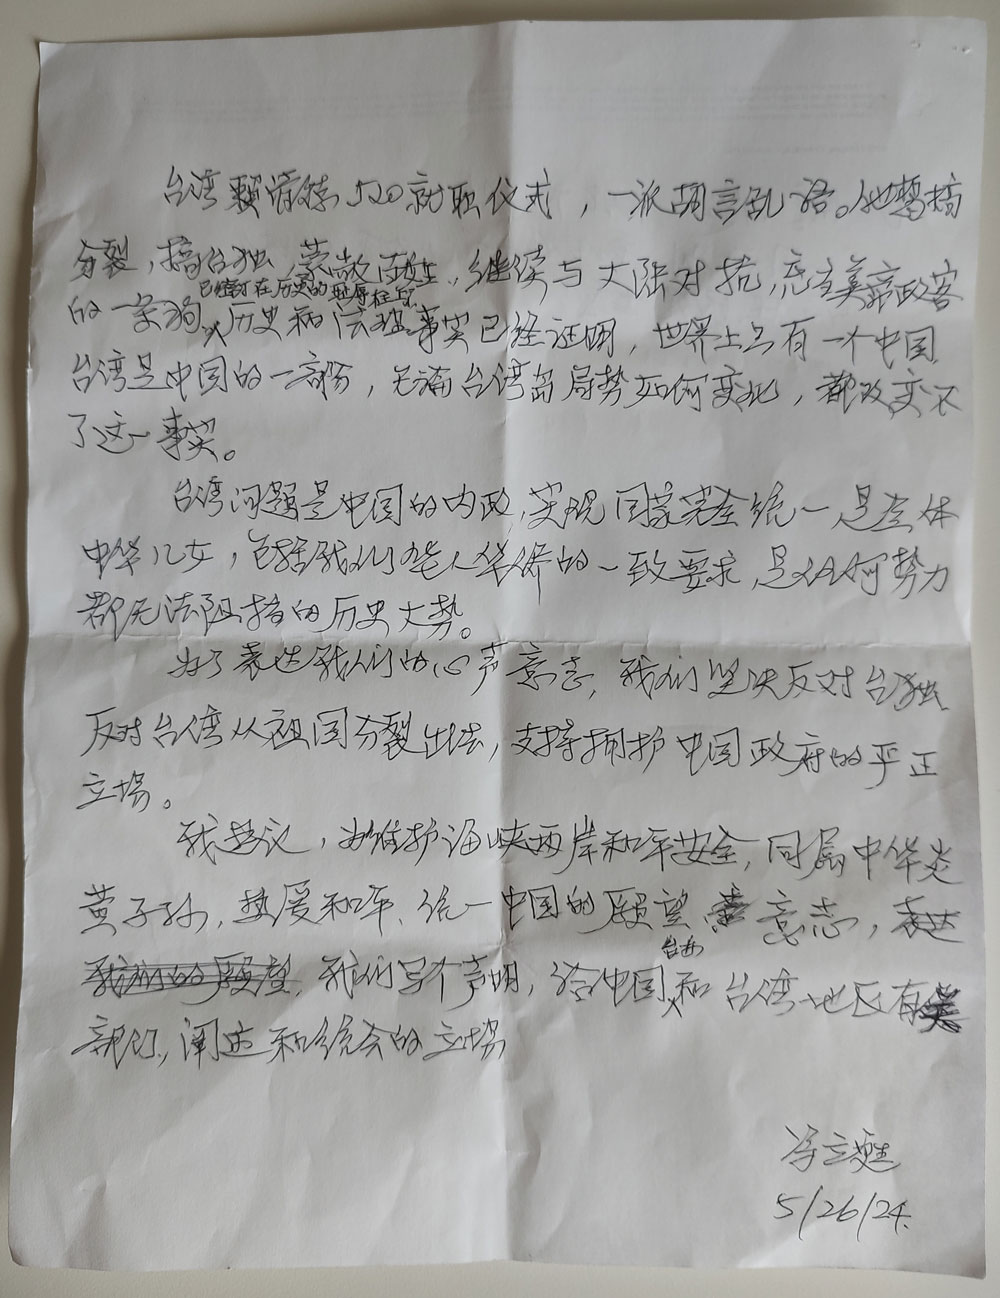 台湾赖清德520就职仪式，一派胡言乱语。他蓄搞
分裂，搞台独，蒙敝百姓，继续与大陆对抗，忠当美帝政客
已经钉在历史的耻辱柱上
的一条狗，历史和法理事实已经证明，世界上只有一个中国
台湾是中国的一部份，无论台湾岛局势如何变化，都改变不
了这一事实。
台湾问题是中国的内政，实现国家完全统一，是全体
中华儿女，包括我们老人华侨的一致要求，是任何势力
都无法阻挡的历史大势。
为了表达我们的心声意志，我们坚决反对台独
反对台湾从祖国分裂出去，支持拥护中国政府的严正
立场。
我建议，为维护海峡两岸和平安全，同属中华炎
黄子孙，热爱和平、统一中国的愿望 意志，表达
我们的愿望，我们写个声明，给中国和台湾地区有
台办
部门，阐述和统会的立场
5/26/24.